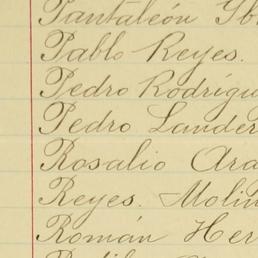 Pantaleón Yb
Pablo Reyes.
Pedro Rodrígu
Pedro Lander
Rosalio Ara
Reyes. Molin
Román Her